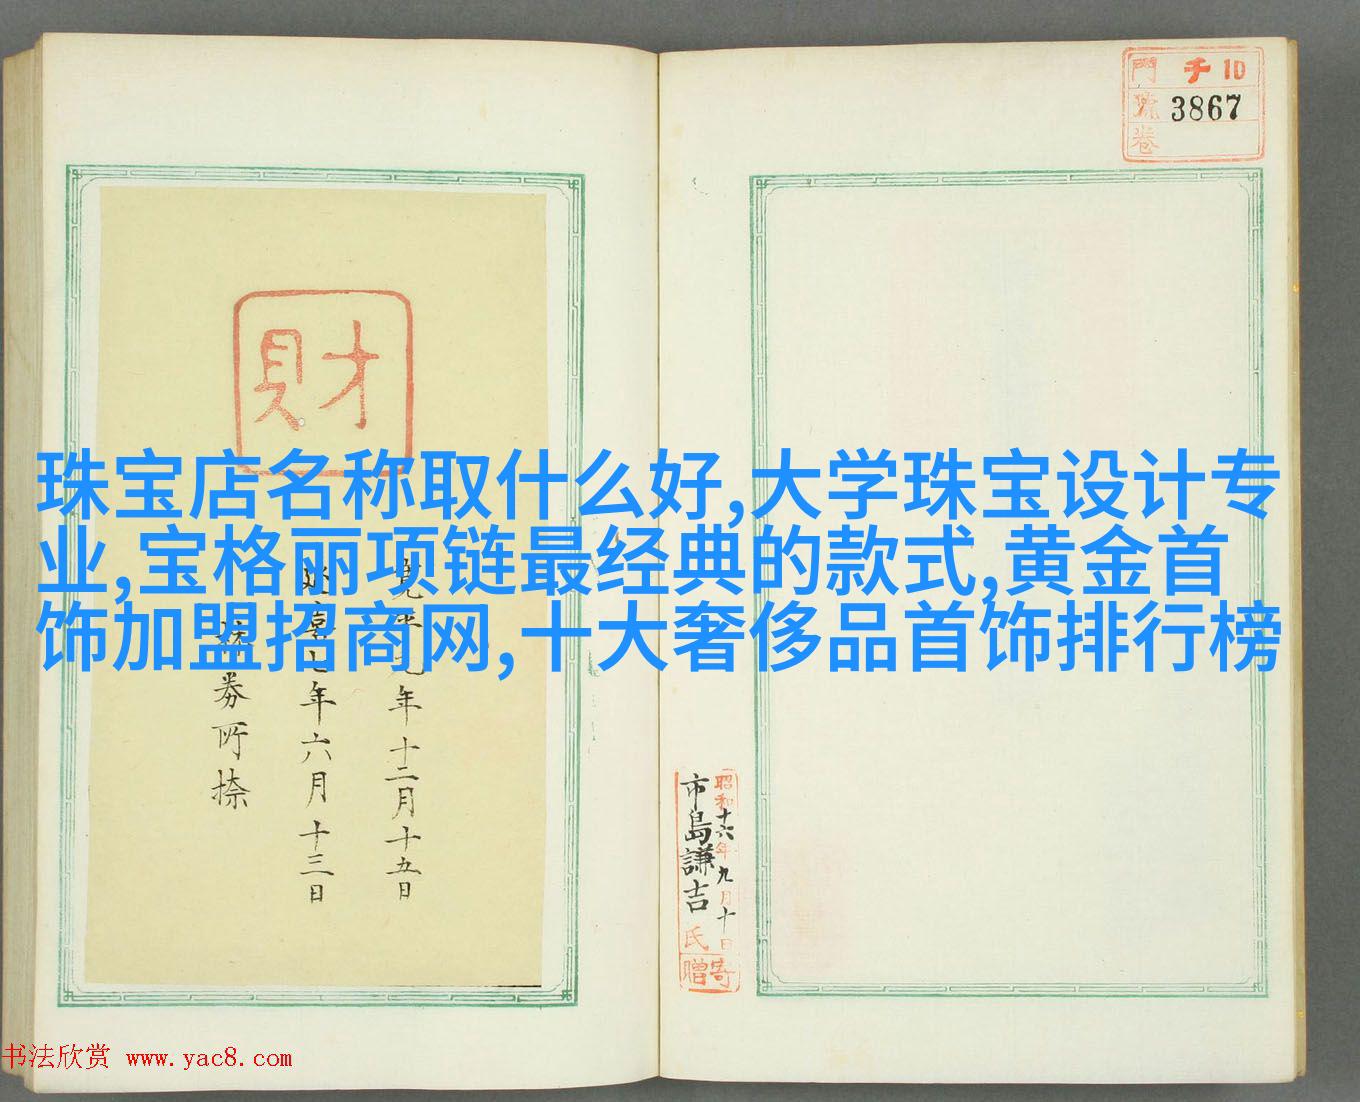 門 千10
號 3867
卷
財
珠宝店名称取什么好,大学珠宝设计专
业,宝格丽项链最经典的款式,黄金首
饰加盟招商网,十大奢侈品首饰排行榜
年十二月十五日
七年六月十三日
券所捺
昭和十六年九月十日
市島謙吉氏
寄贈
书法欣赏 www.yac8.com